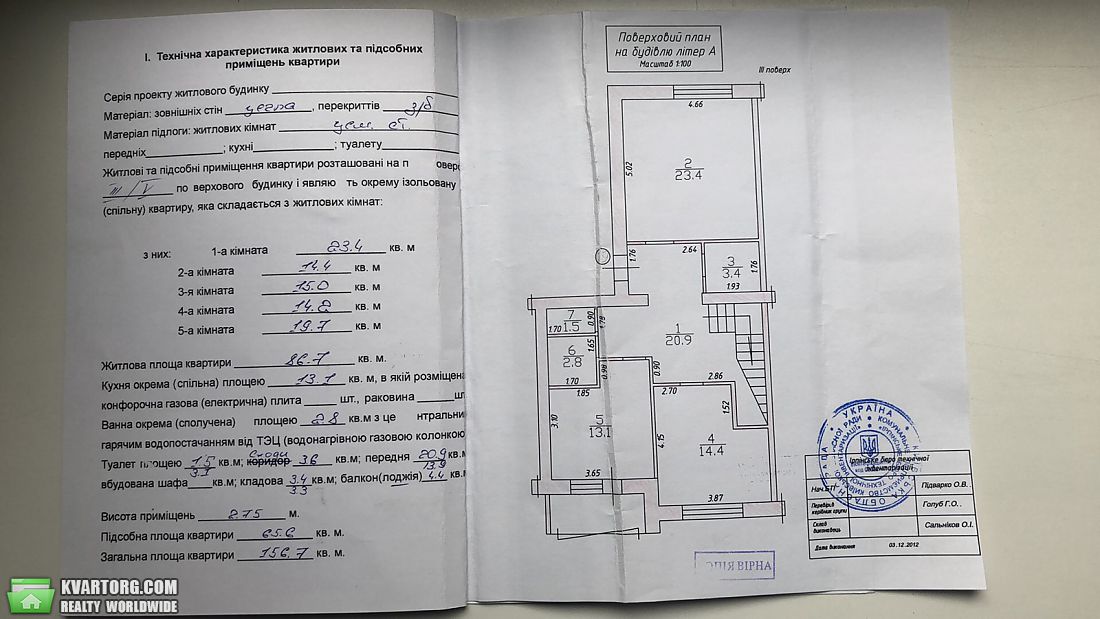 І. Технічна характеристика житлових та підсобних
приміщень квартири
Серія проекту житлового будинку
Матеріал: зовнішніх стін цегла, перекриттів з/б
Матеріал підлоги: житлових кімнат цем. ст.
передніх ; кухні ; туалету
Житлові та підсобні приміщення квартири розташовані на п оверс
III/V по верхового будинку і являю ть окрему ізольовану
(спільну) квартиру, яка складається з житлових кімнат:
з них: 1-а кімната 23.4 кв. м
2-а кімната 14.4 кв. м
3-я кімната 15.0 кв. м
4-а кімната 14.2 кв. м
5-а кімната 19.7 кв. м
Житлова площа квартири 86.7 кв. м.
Кухня окрема (спільна) площею 13.1 кв. м, в якій розміщена
конфорочна газова (електрична) плита шт., раковина шт
Ванна окрема (сполучена) площею 2.8 кв.м з це нтральни
гарячим водопостачанням від ТЭЦ (водонагрівною газовою колонкою
Туалет площею 1.5 кв.м; коридор сходи 3.6 кв.м; передня 20.9 кв.м
3.1 13.9
вбудована шафа кв.м; кладова 3.4 кв.м; балкон(лоджія) 4.4 кв.м
3.3
Висота приміщень 2.75 м.
Підсобна площа квартири 65.6 кв. м.
Загальна площа квартири 156.7 кв. м.
Поверховий план
на будівлю літер А
Масштаб 1:100
III поверх
4.66
5.02
2
23.4
1.76
2.64
3
3.4
1.76
1.93
7
1.5
1.70
0.90
1.78
1
20.9
6
2.8
1.65
1.70
0.98
0.90
2.86
1.85
2.70
1.52
3.10
5
13.1
4.15
4
14.4
3.65
3.87
УКРАЇНА
Ірпінське бюро технічної
інвентаризації
Нач.БТІ
Підварко О.В.
Перевірив
керівник групи
Голуб Г.О.
Склад
виконавець
Сальніков О.І.
Дата виконання
03.12.2012
ОПІЯ ВІРНА
KVARTORG.COM
REALTY WORLDWIDE